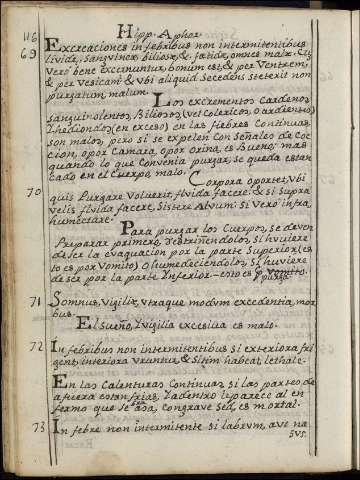 Hipp. Aphor.
116
69 Excreaciones in febribus non intermitentibus
livide, sangvineæ biliosæ, & fætidæ, omnes malæ. Si
vero bene excernuntur, bonum est, & per Ventrem,
& per Vesicam: & vbi aliquid Secedens steterit non
purgatum, malum.
Los excrementos Cardenos
sanguinolentos, Biliosos, (vel Colericos, o ardientes)
Ihediondos, (en exceso) en las fiebres Continuas,
son malos, pero si se expelen con Señales de Coc-
cion, o por Camara, o por orina, es Bueno; mas
quando lo que Convenia purgar, se queda estan
cado en el Cuerpo, malo.
70 Corpora oportet, vbi
quis Purgare Voluerit, flvida facere: & si Supra
velis flvida facere, Sistere Alvum: Si Vero infra,
humectare.
Para purgar los Cuerpos, se deven
Preparar primero, Restriñendolos, Si huviere
de Ser la evaquacion por la parte Superior, (es
to es por Vomito) o humedeciendolos, Si huviere
de ser por la parte Inferior – esto es p.r Vomito.
purga
71 Somnus, Vigiliæ, vtraque modvm excedentia, mor
bus.
El sueño, I vigilia excesiva es malo.
72 In febribus non intermitentibus si exteriora fri
gent, interiora vruntur, & Sitim habeat, lethale.
En las Calenturas Continuas, si las partes de
afuera estan frias, I adentro lo parece al en
fermo que se asa, con grave Sed, es mortal.
73 In febre non intermitente si labrvm, avt na
sus.